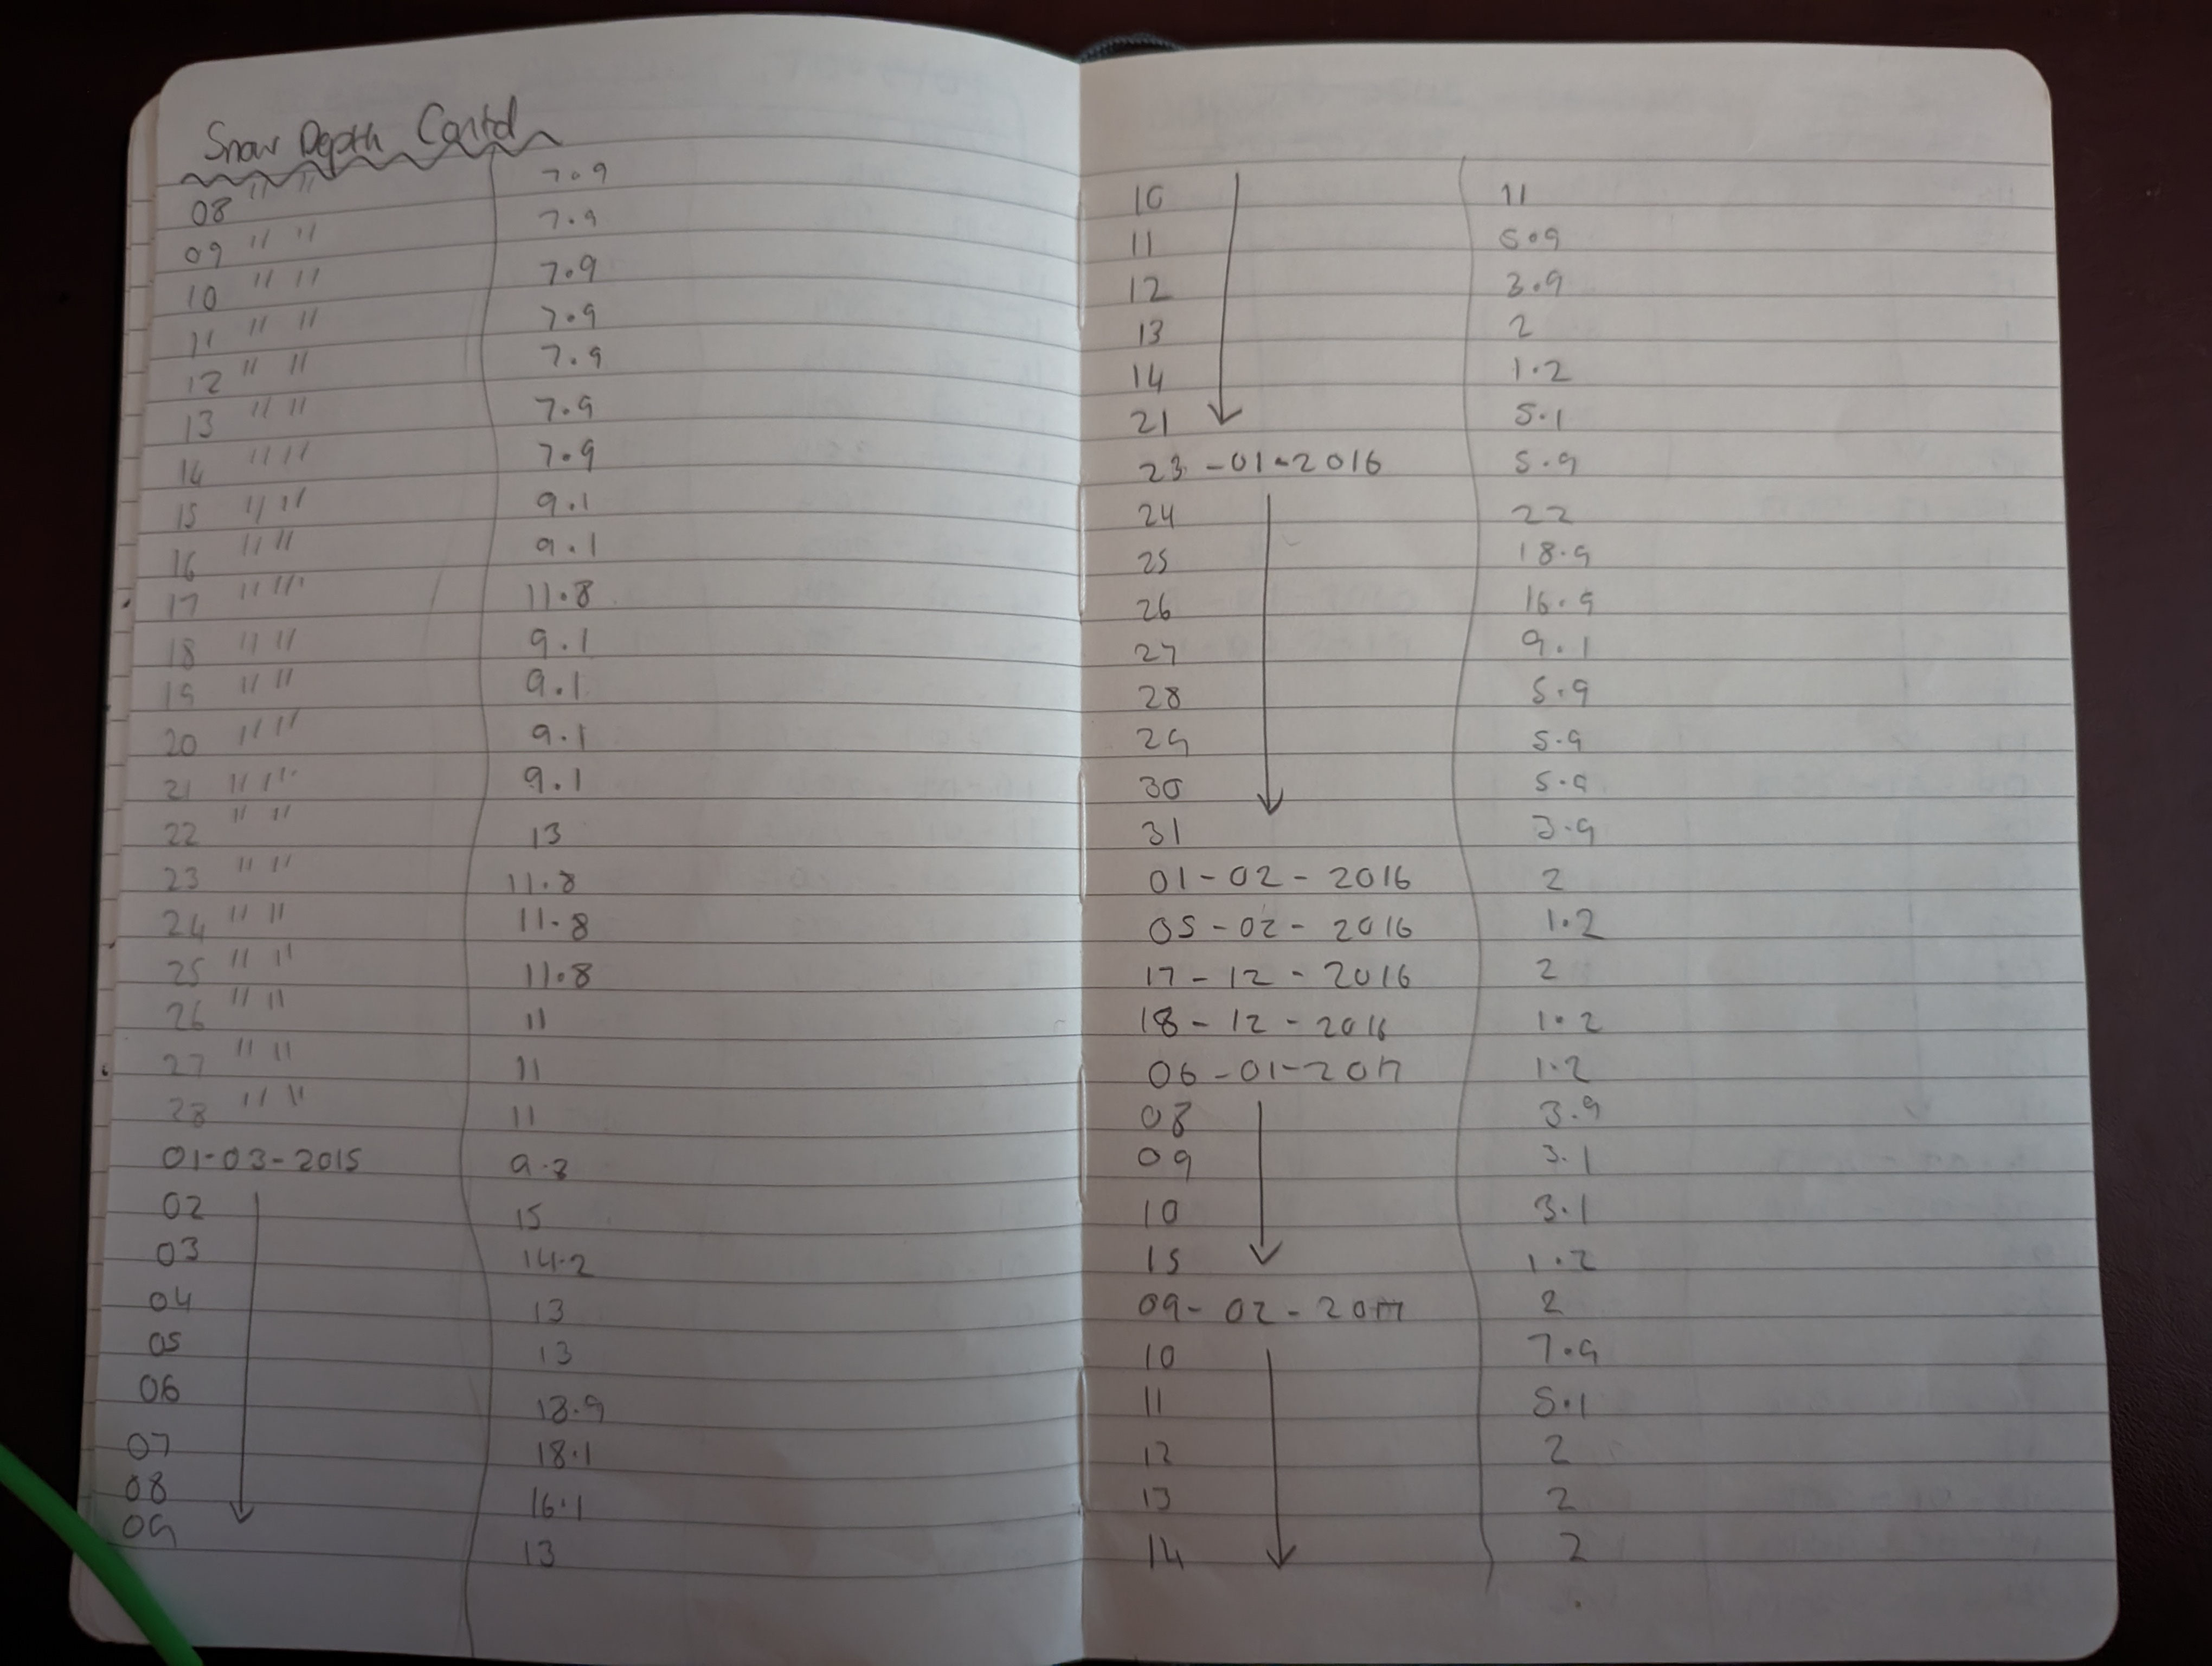 Snow Depth Contd
08 " " 7.9
09 " " 7.9
10 " " 7.9
11 " " 7.9
12 " " 7.9
13 " " 7.9
14 " " 7.9
15 " " 9.1
16 " " 9.1
17 " " 11.8
18 " " 9.1
19 " " 9.1
20 " " 9.1
21 " " 9.1
22 " " 13
23 " " 11.8
24 " " 11.8
25 " " 11.8
26 " " 11
27 " " 11
28 " " 11
01-03-2015 9.8
02 15
03 14.2
04 13
05 13
06 18.9
07 18.1
08 16.1
09 13
10 11
11 5.9
12 3.9
13 2
14 1.2
21 5.1
23-01-2016 5.9
24 22
25 18.9
26 16.9
27 9.1
28 5.9
29 5.9
30 5.9
31 3.9
01-02-2016 2
05-02-2016 1.2
17-12-2016 2
18-12-2016 1.2
06-01-2017 1.2
08 3.9
09 3.1
10 3.1
15 1.2
09-02-2017 2
10 7.9
11 5.1
12 2
13 2
14 2